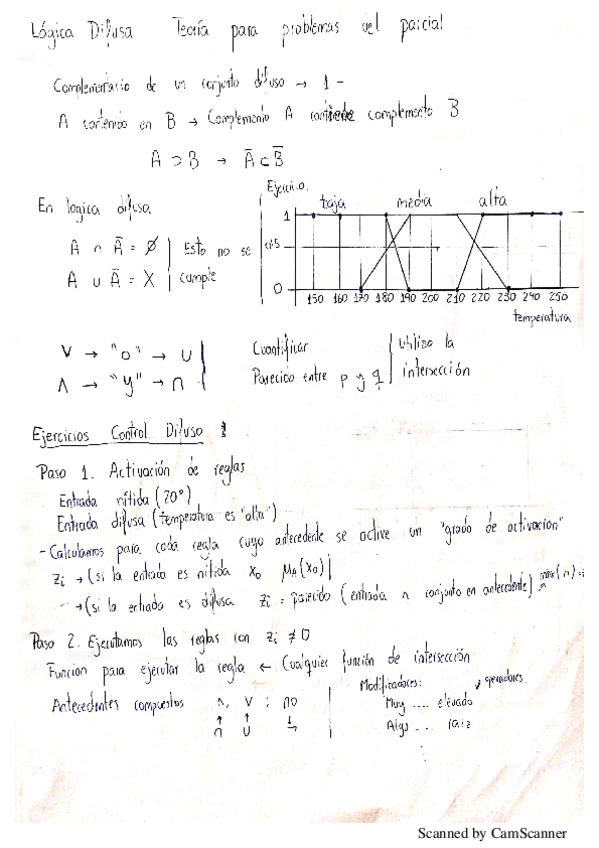 Lógica Difusa Teoría para problemas del parcial
Complementario de un conjunto difuso → 1 -
A contenido en B → Complemento A contiene complemento B
A ⊃ B → Ā ⊂ B̄
En logica difusa
A ∩ Ā = ∅ | Esto no se
A ∪ Ā = X | cumple
Ejercicio.
baja media alta
1
0.5
0
150 160 170 180 190 200 210 220 230 240 250
temperatura
V → "o" → ∪
Λ → "y" → ∩
Cuantificar
Parecido entre p y q
utilizo la
intersección
Ejercicios Control Difuso 1
Paso 1. Activación de reglas
Entrada nítida (20°)
Entrada difusa (temperatura es "alta")
- Calculamos para cada regla cuyo antecedente se active un "grado de activacion"
Zi → (si la entrada es nítida x0 μA(x0)
→ (si la entrada es difusa Zi = parecido (entrada ∩ conjunto en antecedente)
Paso 2. Ejecutamos las reglas con Zi ≠ 0
Función para ejecutar la regla ← Cualquier función de intersección
Antecedentes compuestos Λ, V, no
∩ ∪ ¬
Modificadores: operadores
Muy .... elevado
Algo ... raiz
Scanned by CamScanner